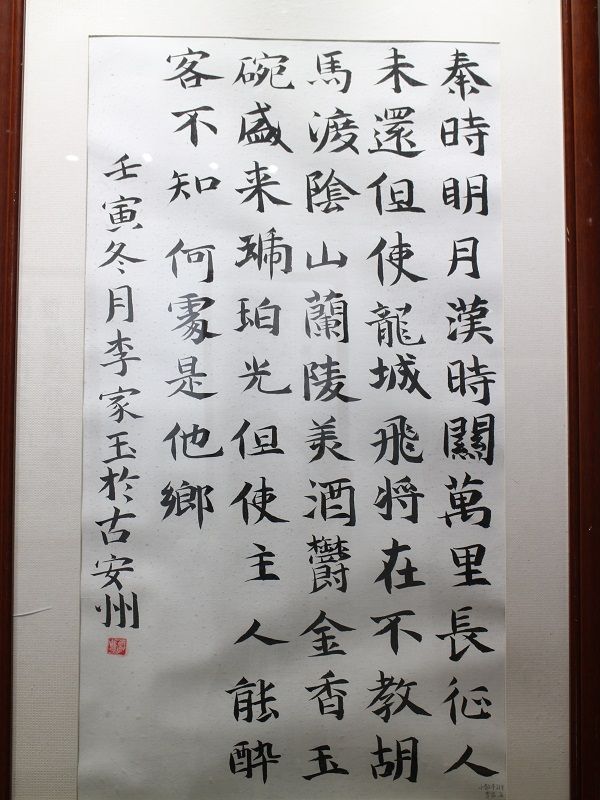 秦時明月漢時關萬里長征人
未還但使龍城飛将在不教胡
馬渡陰山蘭陵美酒欝金香玉
碗盛来琥珀光但使主人能醉
客不知何處是他鄉
壬寅冬月李家玉於古安州